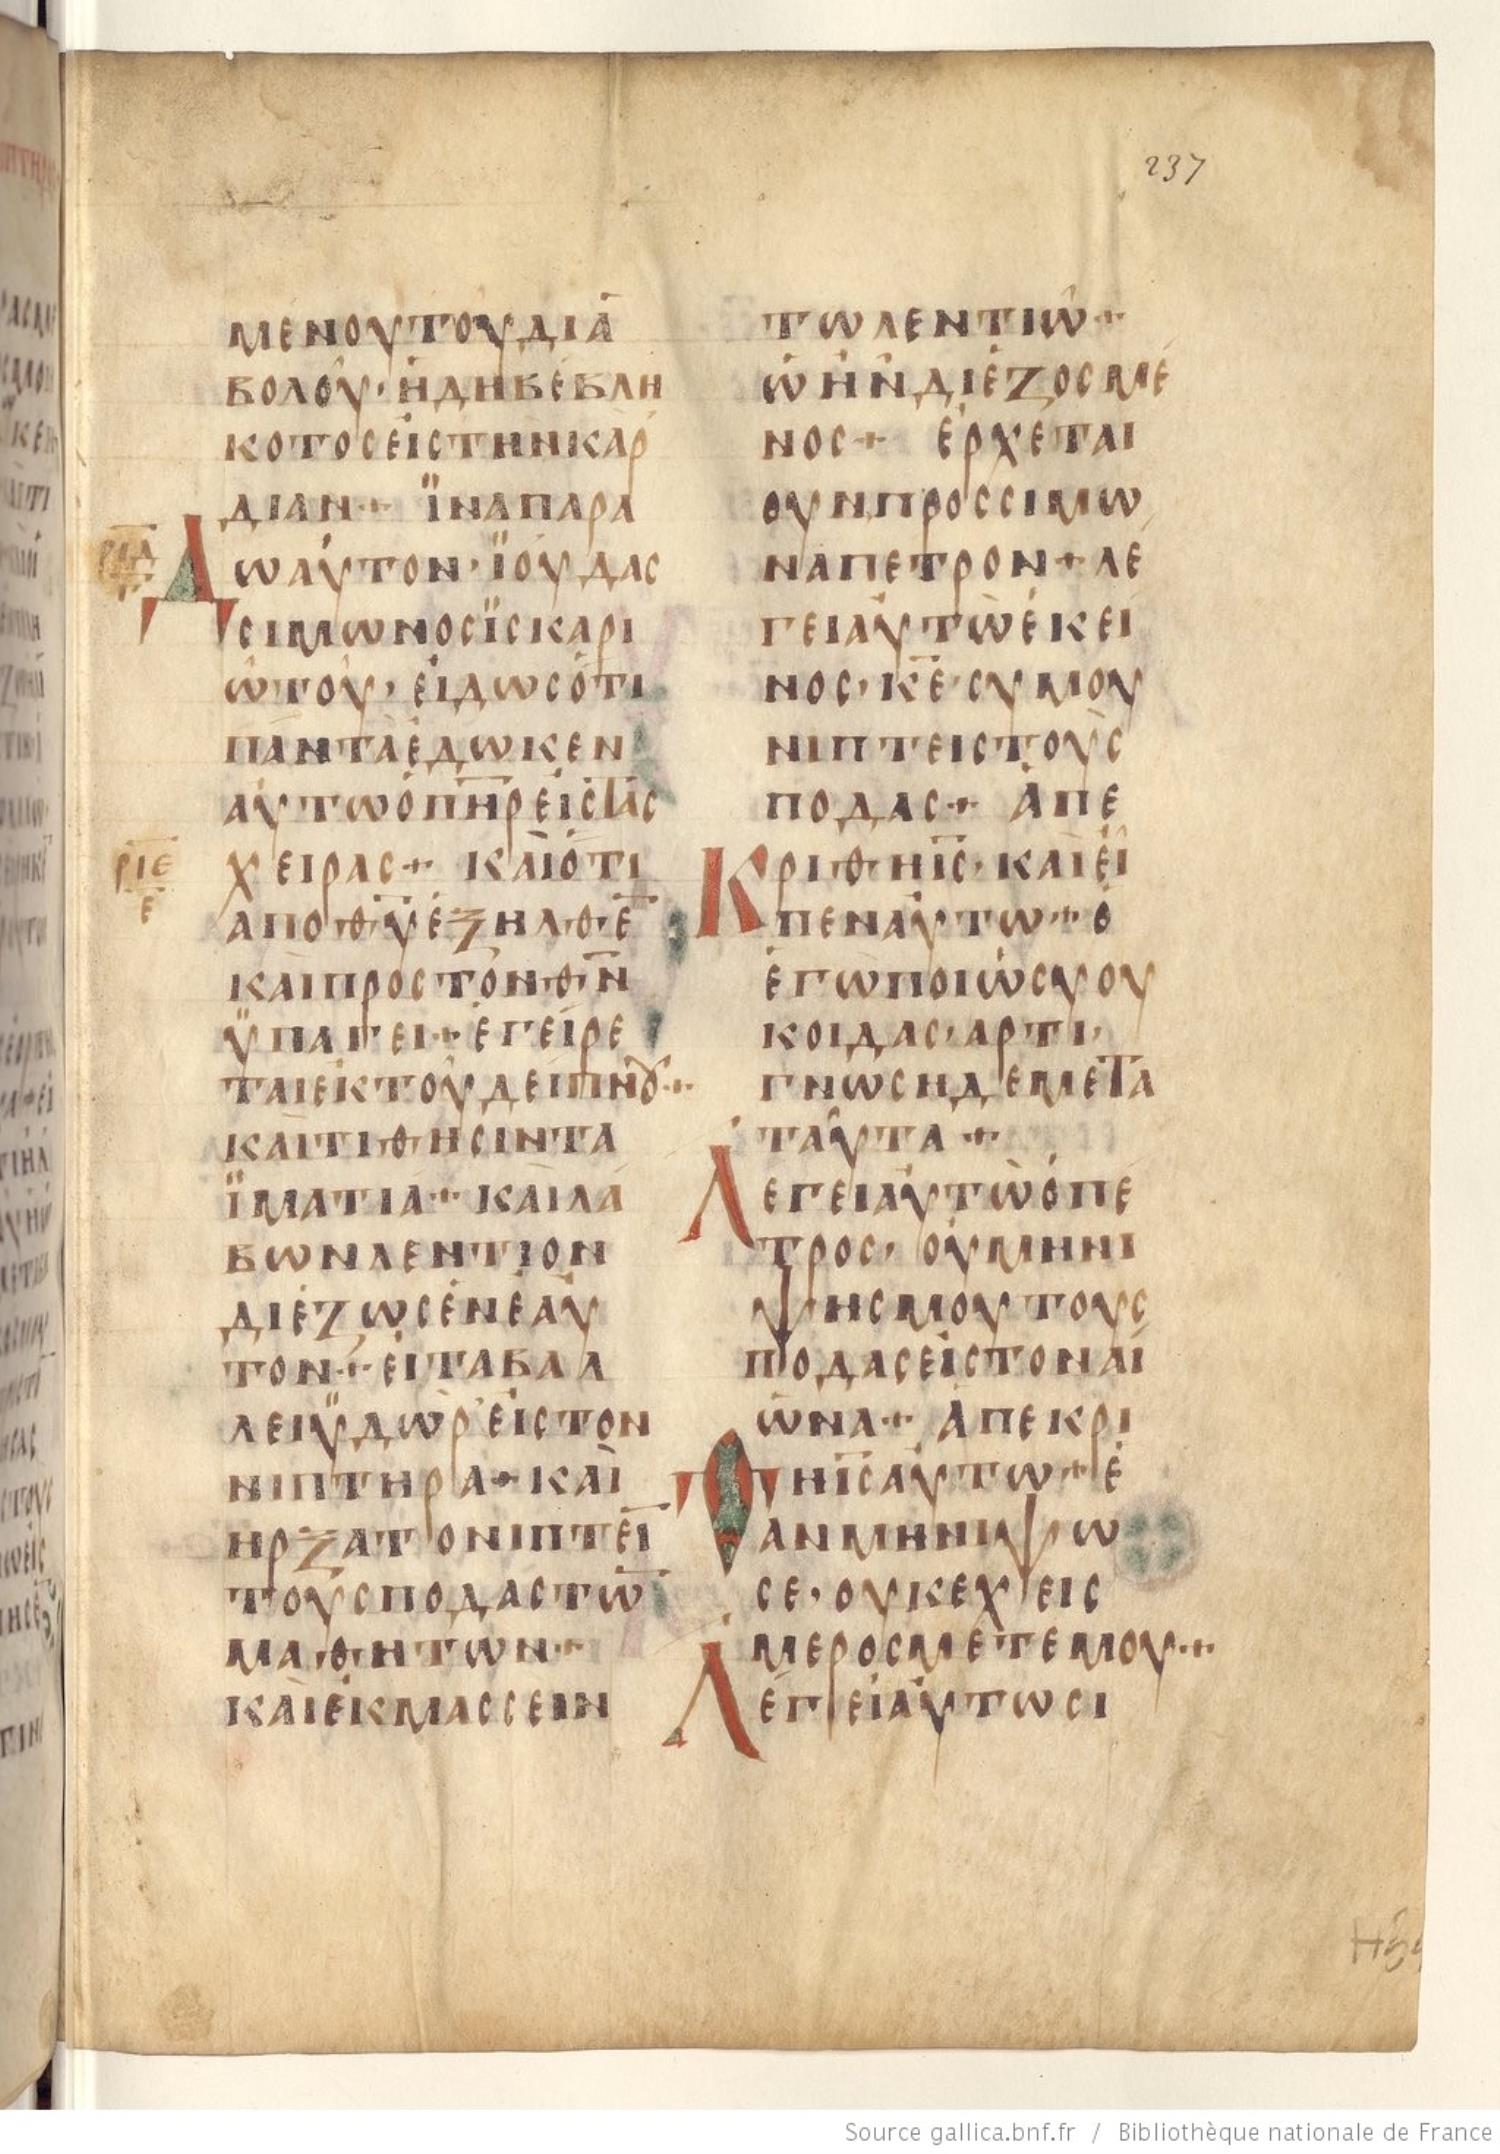 237
ΜΕΝΟΥΤΟΥΔΙΑ
ΒΟΛΟΥ·ΗΔΗΒΕΒΛΗ
ΚΟΤΟΣΕΙΣΤΗΝΚΑΡ
ΔΙΑΝ+ ΪΝΑΠΑΡΑ
ΡΙΔ
ΔΩΑΥΤΟΝ·ΪΟΥΔΑΣ
ΣΙΜΩΝΟΣΪΣΚΑΡΙ
ΩΤΟΥ, ΕΙΔΩΣΟΤΙ
ΠΑΝΤΑΕΔΩΚΕΝ
ΑΥΤΩΟΠΗΡΕΙΣΤΑΣ
ΡΙΕ
Ε
ΧΕΙΡΑΣ+ ΚΑΙΟΤΙ
ΑΠΟΘΥ̅ΕΞΗΛΘΕ̅
ΚΑΙΠΡΟΣΤΟΝΘΝ̅
ΫΠΑΓΕΙ+ΕΓΕΙΡΕ
ΤΑΙΕΚΤΟΥΔΕΙΠΝȣ+
ΚΑΙΤΙΘΗΣΙΝΤΑ
ΪΜΑΤΙΑ+ ΚΑΙΛΑ
ΒΩΝΛΕΝΤΙΟΝ
ΔΙΕΖΩΣΕΝΕΑΥ
ΤΟΝ+ΕΙΤΑΒΑΛ
ΛΕΙΫΔΩΡΕΙΣΤΟΝ
ΝΙΠΤΗΡΑ+ΚΑΙ
ΗΡΞΑΤΟΝΙΠΤΕΙ̅
ΤΟΥΣΠΟΔΑΣΤΩ̅
ΜΑΘΗΤΩΝ+
ΚΑΙΕΚΜΑΣΣΕΙΝ
ΤΩΛΕΝΤΙΩ+
ΩΗΝΔΙΕΖΟΣΜΕ
ΝΟΣ+ ΕΡΧΕΤΑΙ
ΟΥΝΠΡΟΣΣΙΜΩ
ΝΑΠΕΤΡΟΝ+ΛΕ
ΓΕΙΑΥΤΩΕΚΕΙ
ΝΟΣ,ΚΕ̅·ΣΥΜΟΥ
ΝΙΠΤΕΙΣΤΟΥΣ
ΠΟΔΑΣ+ ΑΠΕ
ΚΡΙΘΗΙΣ̅·ΚΑΙΕΙ
ΠΕΝΑΥΤΩ+Ο
ΕΓΩΠΟΙΩΣΥΟΥ
ΚΟΙΔΑΣ,ΑΡΤΙ,
ΓΝΩΣΗΔΕΜΕΤΑ
ΤΑΥΤΑ+
ΛΕΓΕΙΑΥΤΩΟΠΕ
ΤΡΟΣ, ΟΥΜΗΝΙ
ΨΗΣΜΟΥΤΟΥΣ
ΠΟΔΑΣΕΙΣΤΟΝΑΙ
ΩΝΑ+ ΑΠΕΚΡΙ
ΘΗΙΣ̅ΑΥΤΩ+Ε
ΑΝΜΗΝΙΨΩ
ΣΕ, ΟΥΚΕΧΕΙΣ
ΜΕΡΟΣΜΕΤΕΜΟΥ+
ΛΕΓΕΙΑΥΤΩΣΙ
Source gallica.bnf.fr / Bibliothèque nationale de France